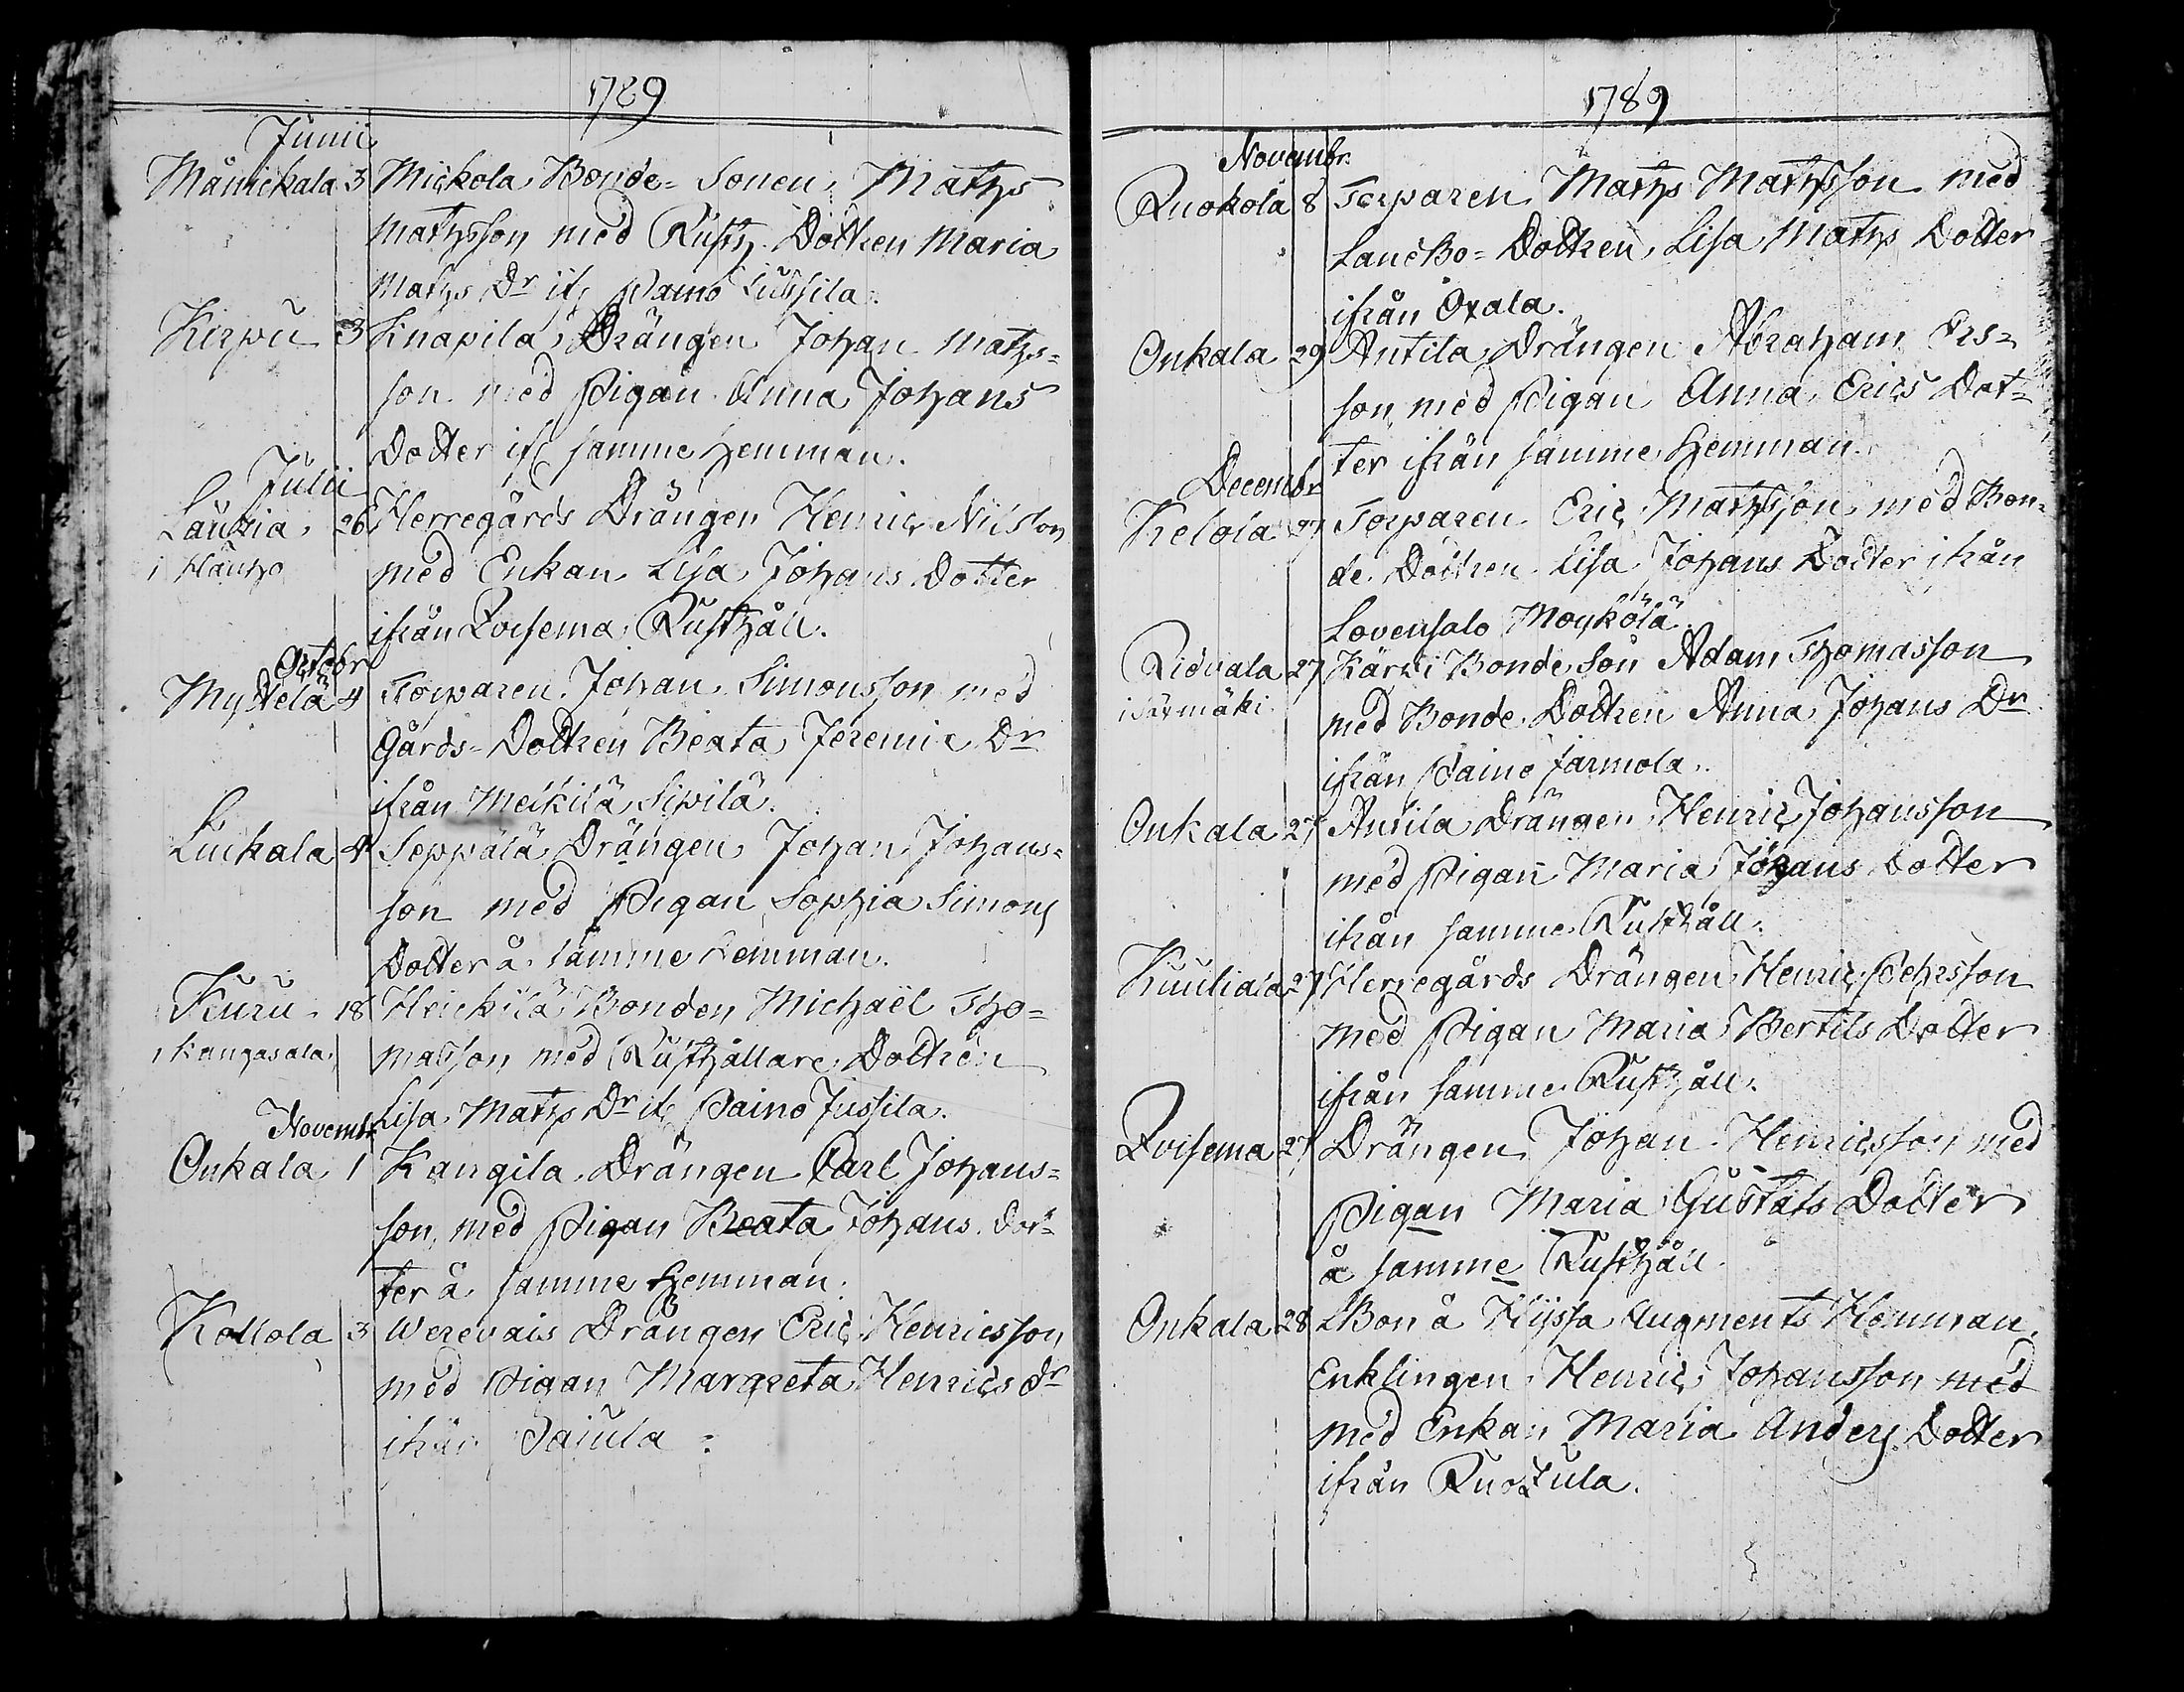 1789
Junii
Månickala 3 Mickola Bonde= Sonen Mathz
Mathzsson med Rusth. Dottren Maria
Mathz Dr if Paino Jussila.
Kirpu 3 Knapila Drängen Johan Mathz=
son med Pigan Anna Johans
Dotter if samme Hemman.
Julii
Lautzia 26 Herregårds Drängen Henric Nilsson
i Hautzo med Enkan Lisa Johans Dotter
ifrån Zvisema Rusthåll.
Octobr
Myttelä 4 Torparen Johan Simonsson med
Gårds= Dottren Beata Jeremiæ Dr
ifrån Meckilä Sipilä.
Luckala 4 Seppälä Drängen Johan Johans=
son med Pigan Sophia Simons
Dotter å samme Hemman.
Kuru 18 Heickilä Bonden Michaël Tho=
i Kangasala masson med Rusthållare Dottren
Lisa Mathz Dr if Paino Jussila.
Novembr
Onkala 1 Kangila Drängen Carl Johans=
son med Pigan Beata Johans Dot=
ter å samme Hemman.
Kollola 3 Werevais Drängen Eric Henricsson
med Pigan Margreta Henrics dr
ifrån Saiula.
1789
Novembr.
Ruokola 8 Torparen Mathz Mathzsson med
Landbo= Dottren Lisa Mathz Dotter
ifrån Oxala.
Onkala 29 Antila Drängen Abraham Ers=
son med Pigan Anna Erics Dot=
ter ifrån samme Hemman.
Decembr
Kelola 27 Torparen Eric Mathzsson med Bon=
de Dottren Lisa Johans Dotter ifrån
Lovensalo Moykölä.
Ridvala 27 Kärki Bonde Son Adam Thomasson
i Särmäki med Bonde Dottren Anna Johans Dr
ifrån Paino Jarmola.
Onkala 27 Antila Drängen Henric Johansson
med Pigan Maria Johans Dotter
ifrån samme Rusthåll.
Kuuliala 27 Herregårds Drängen Henric Pehrsson
med Pigan Maria Bertils Dotter
ifrån samme Rusthåll.
Zvisema 27 Drängen Johan Henricsson med
Pigan Maria Gustafs Dotter
å samme Rusthåll.
Onkala 28 Bon å Hyssa Augments Hemman
Enklingen Henric Johansson med
med Enkan Maria Anders Dotter
ifrån Ruokula.